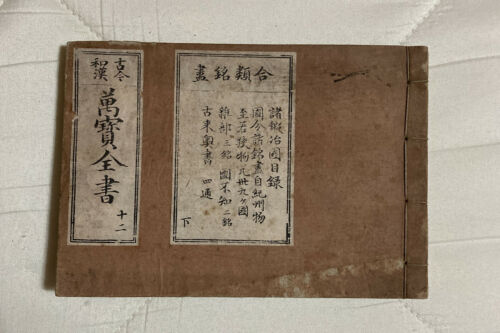 古今
和漢
萬寶全書
十二
合類銘盡
諸鍛冶國目録
國分諸銘盡自紀州物
至若狹物凡卅九ヶ國
雜部三銘 國不知二銘
古来奥書 四通
下